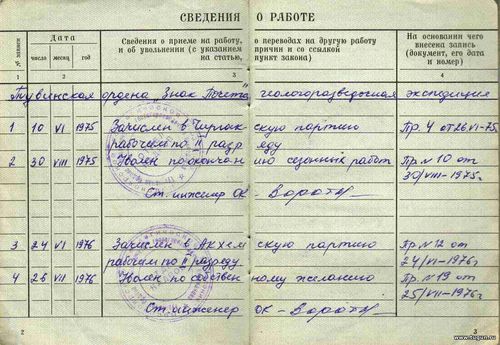 СВЕДЕНИЯ О РАБОТЕ
№ записи
Дата
число месяц год
Сведения о приеме на работу, о переводах на другую работу
и об увольнении (с указанием причин и со ссылкой
на статью, пункт закона)
На основании чего
внесена запись
(документ, его дата
и номер)
1 2 3 4
Тувинская ордена "Знак Почета" геологоразведочная экспедиция
1 10 VI 1975 Зачислен в скую партию Пр. 4 от 26 VI-75
рабочим по II разряду
2 30 VIII 1975 Уволен по окончанию сезонных работ Пр N 10 от
30/VIII-1975г.
Ст. инженер ОК -
3 24 VI 1976 Зачислен в Аххемскую партию Пр. N 12 от
рабочим по II разряду 24/VI-1976г
4 26 VII 1976 Уволен по собственному желанию Пр. N 19 от
25/VII-1976г
Ст. инженер ОК -
2 3
www.tugun.ru